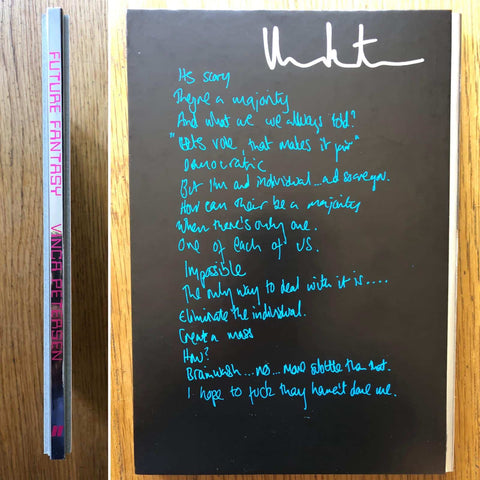 FUTURE FANTASY VINCA PETERSEN
Its scary
Theyre a majority
And what are we allways told?
"Lets vote, that makes it fair"
Democratic
But I'm and individual...and so are you.
How can their be a majority
When there's only one.
One of each of us.
Impossible
The only way to deal with it is....
Eliminate the individual.
Creat a mass
How?
Brainwash...no...more subtle than that.
I hope to fuck they haven't done me.